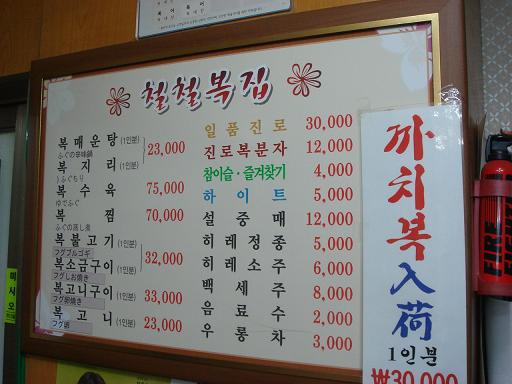 철철복집
복매운탕 (1인분)
ふぐの辛味鍋
23,000
복지리 (1인분)
ふぐちり
복수육 75,000
ゆでふぐ
복찜 70,000
ふぐの蒸し煮
복불고기 (1인분)
フグプルゴギ
32,000
복소금구이 (1인분)
フグしお焼き
복고니구이 (1인분) 33,000
フグ卵焼き
복고니 (1인분) 23,000
일품진로 30,000
진로복분자 12,000
참이슬·즐겨찾기 4,000
하이트 5,000
설중매 12,000
히레정종 5,000
히레소주 6,000
백세주 8,000
음료수 2,000
우롱차 3,000
까치복入荷
1인분
₩30,000
FIRE
미시오